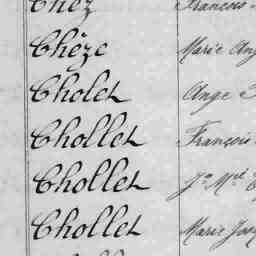 Chez François
Chèze Marie Ang
Cholet Ange
Chollet François
Chollet Jn Mie
Chollet Marie Jose